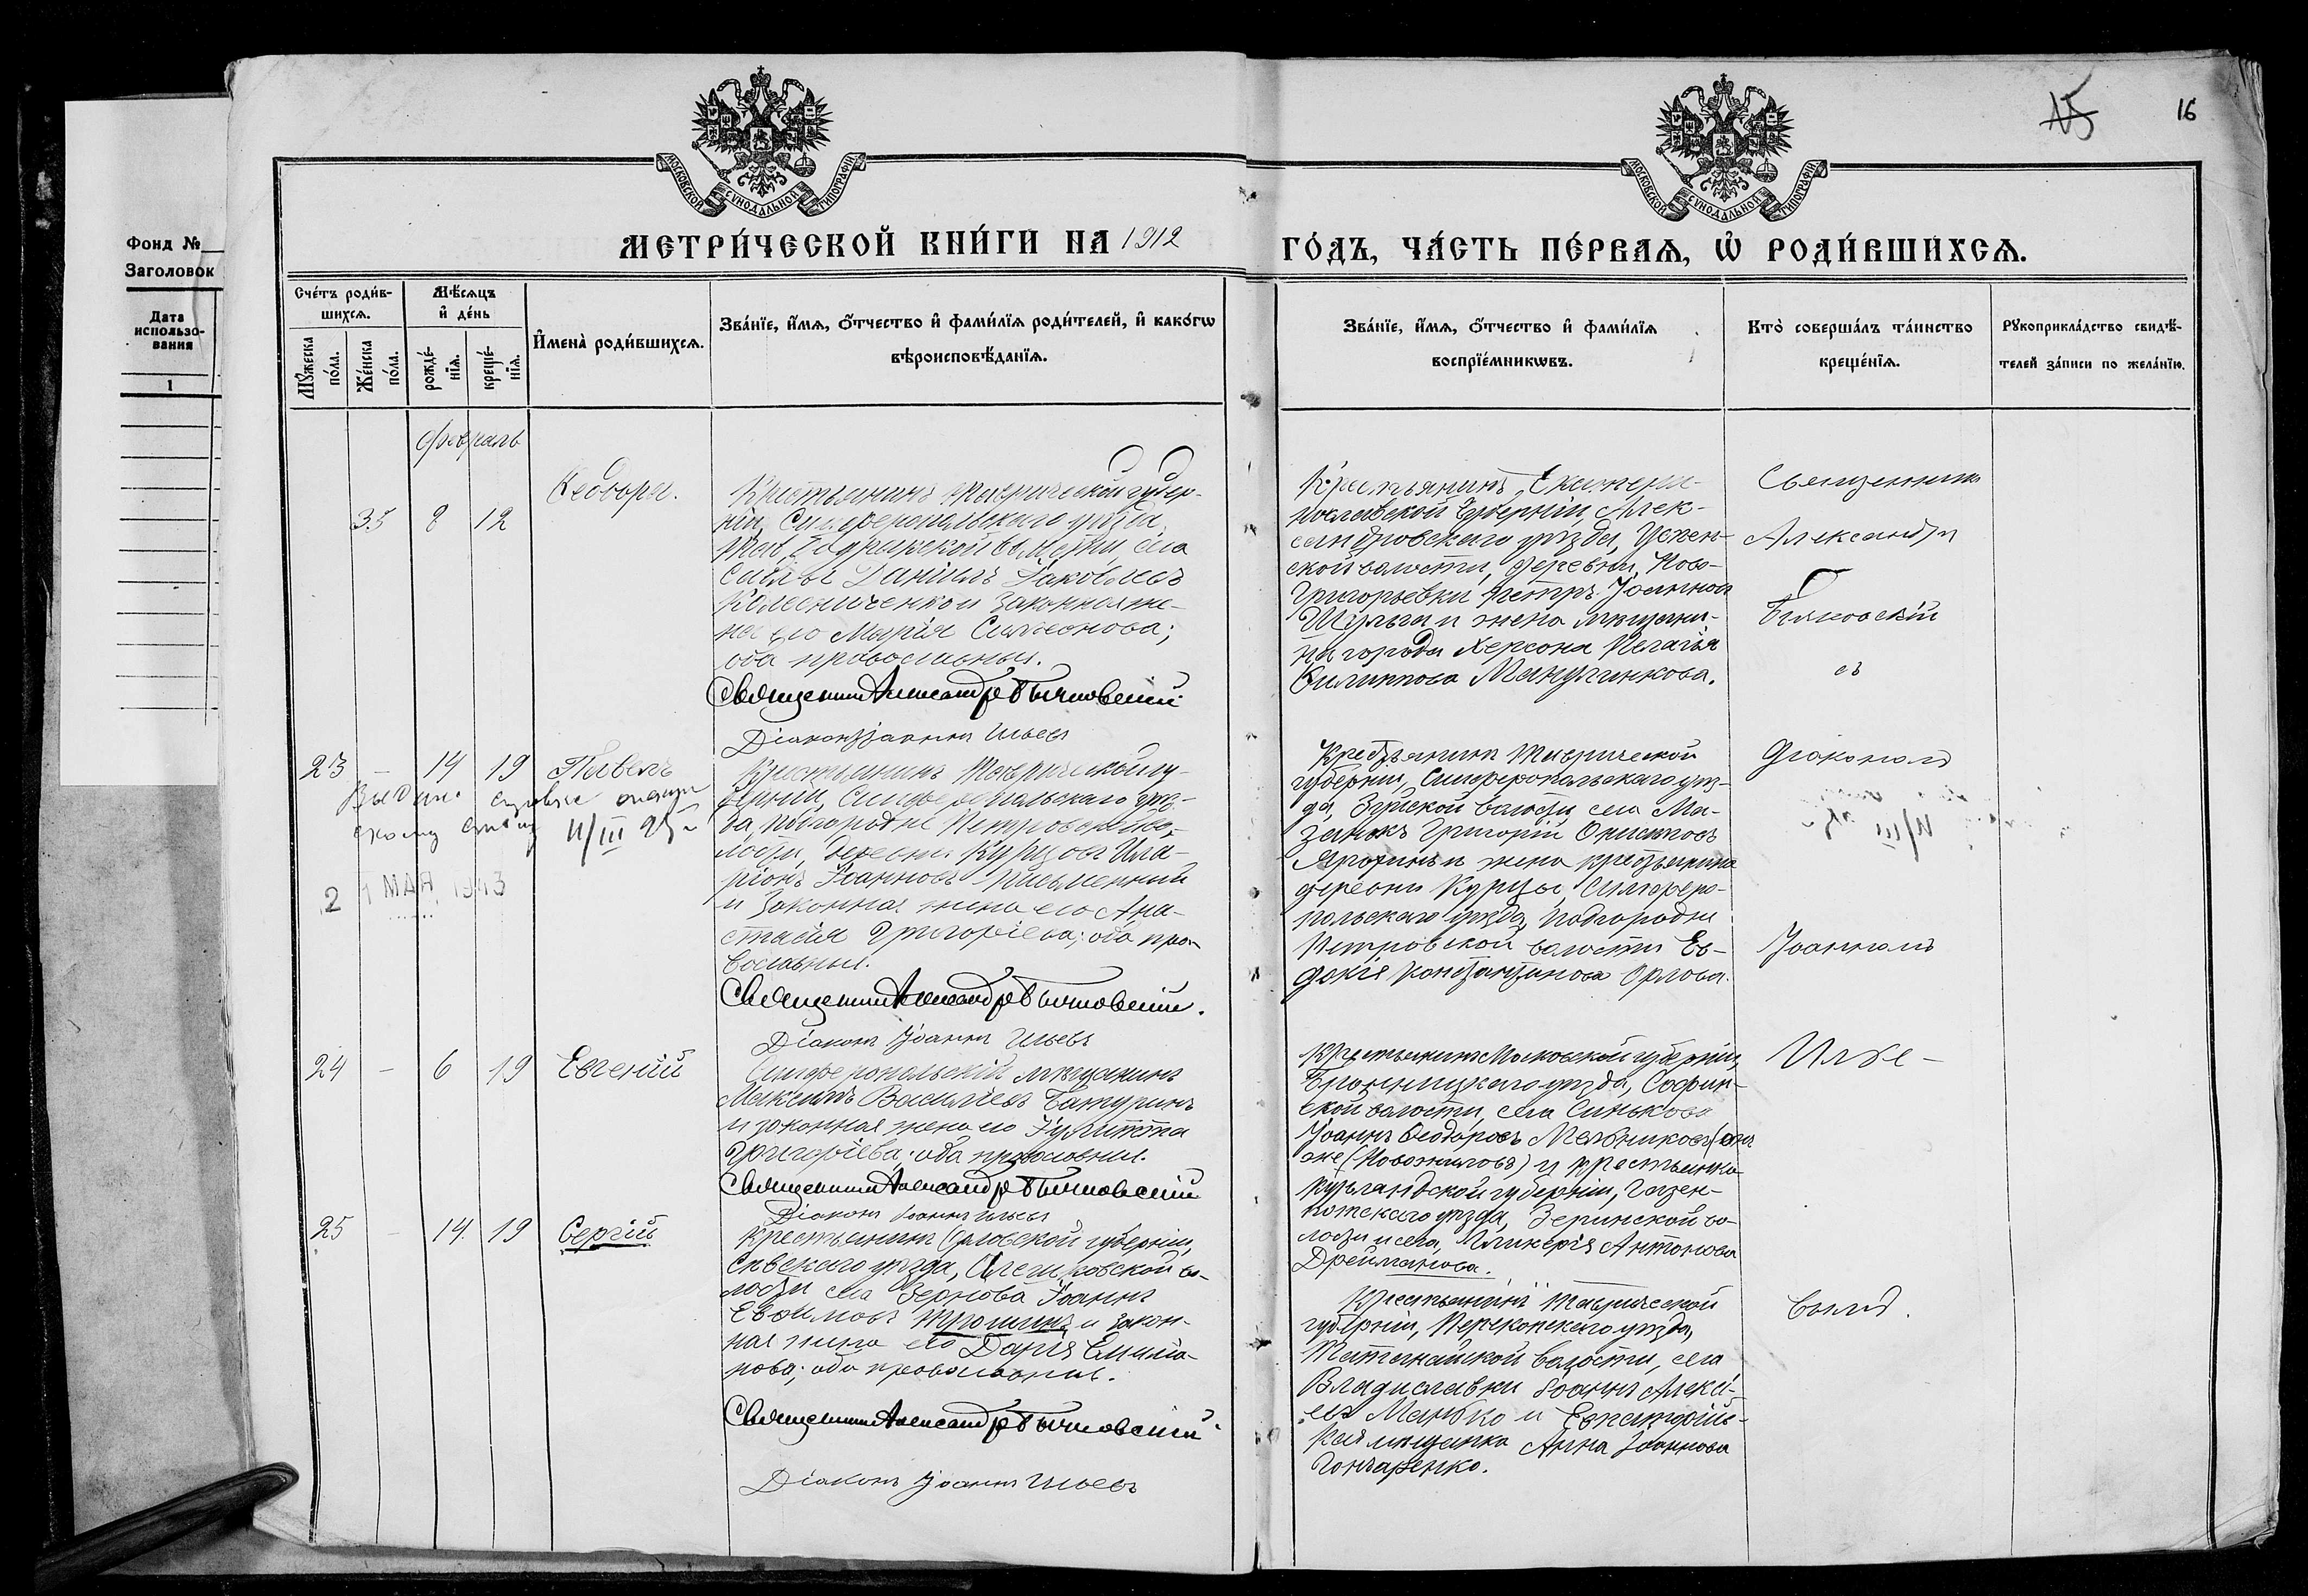 Фонд №
Заголовок
Дата
использо-
вания
1
МОСКОВСКОЙ СѴНОДАЛЬНОЙ ТИПОГРАФІИ
МОСКОВСКОЙ СѴНОДАЛЬНОЙ ТИПОГРАФІИ
15
16
МЕТРИ́ЧЕСКОЙ КНИ́ГИ НА 1912
ГО́ДЪ, ЧА́СТЬ ПЕ́РВАѦ, Ѡ҆ РОДИ́ВШИХСѦ.
Сче́тъ роди́в-
шихсѧ.
Мꙋ́жеска
по́ла.
Же́нска
по́ла.
Мѣ́сѧцъ
и҆ де́нь
рожде́-
нїѧ.
креще́-
нїѧ.
И҆мена̀ роди́вшихсѧ.
Зва́нїе, и҆́мѧ, ѻ҆́тчество и҆ фами́лїѧ роди́телей, и҆ како́гѡ
вѣроисповѣ́данїѧ.
Зва́нїе, и҆́мѧ, ѻ҆́тчество и҆ фами́лїѧ
воспрїе́мникѡвъ.
Кто̀ соверша́лъ та́инство
креще́нїѧ.
Рꙋкоприкла́дство свидѣ́-
телей за́писи по жела́нїю.
Февраль
35 8 12 Ѳеодора.
Крестьянинъ Таврической губер-
ніи, Симферопольскаго уѣзда,
волости села
Саблы Даніилъ Іаковлевъ
Колесниченко и законная же-
на его Марія Симеонова;
оба православные.
Священникъ Александръ
Діаконъ Іоаннъ Ильевъ
Крестьянинъ Екатери-
нославской губерніи, Алек-
сандровскаго уѣзда,
ской волости, деревни Ново-
Григорьевки Петръ Іоанновъ
Шульга и жена мѣщани-
на города Херсона Пелагія
Филиппова
Священникъ
Александръ
съ
23 – 14 19 Павелъ
Выдана справка
11/III 25 г
21 МАЯ 1943
Крестьянинъ Таврической гу-
берніи, Симферопольскаго уѣз-
да, Подгородне Петровской во-
лости, деревни Курцовъ Ила-
ріонъ Іоанновъ Письменный
и законная жена его Ана-
стасія Григоріева; оба пра-
вославные.
Священникъ Александръ
Діаконъ Іоаннъ Ильевъ
Крестьянинъ Таврической
губерніи, Симферопольскаго уѣз-
да, Зуйской волости, села Ма-
занки Григорій
и жена крестьянина
деревни Курцы, Симферо-
польскаго уѣзда, Подгородне
Петровской волости Ев-
докія Константинова Орлова.
діакономъ
Іоанномъ
24 – 6 19 Евгеній
Симферопольскій мѣщанинъ
Максимъ Васильевъ Батуринъ
и законная жена его Іулитта
Григоріева; оба православные.
Священникъ Александръ
Діаконъ Іоаннъ Ильевъ
Крестьянинъ Московской губерніи,
Бронницкаго уѣзда, Софьин-
ской волости, села Синьково
Іоаннъ Ѳеодоровъ Мельниковъ (онъ
же (Новожиловъ) и крестьянка
Курляндской губерніи, Газен-
потскаго уѣзда, Зеринской во-
лости и села, Гликерія Антонова
Дрейманова.
Илье-
25 – 14 19 Сергій
Крестьянинъ Орловской губерніи,
Сѣвскаго уѣзда, во-
лости села Зернова Іоаннъ
Евѳимовъ Трошинъ и закон-
ная жена его Дарія
нова; оба православные.
Священникъ Александръ
Діаконъ Іоаннъ Ильевъ
Крестьянинъ Таврической
губерніи, Перекопскаго уѣзда,
волости, села
Владиславки Іоаннъ Алексі-
евъ Манько и Евпаторій-
ская мѣщанка Анна Іоаннова
Гончаренко.
вымъ.